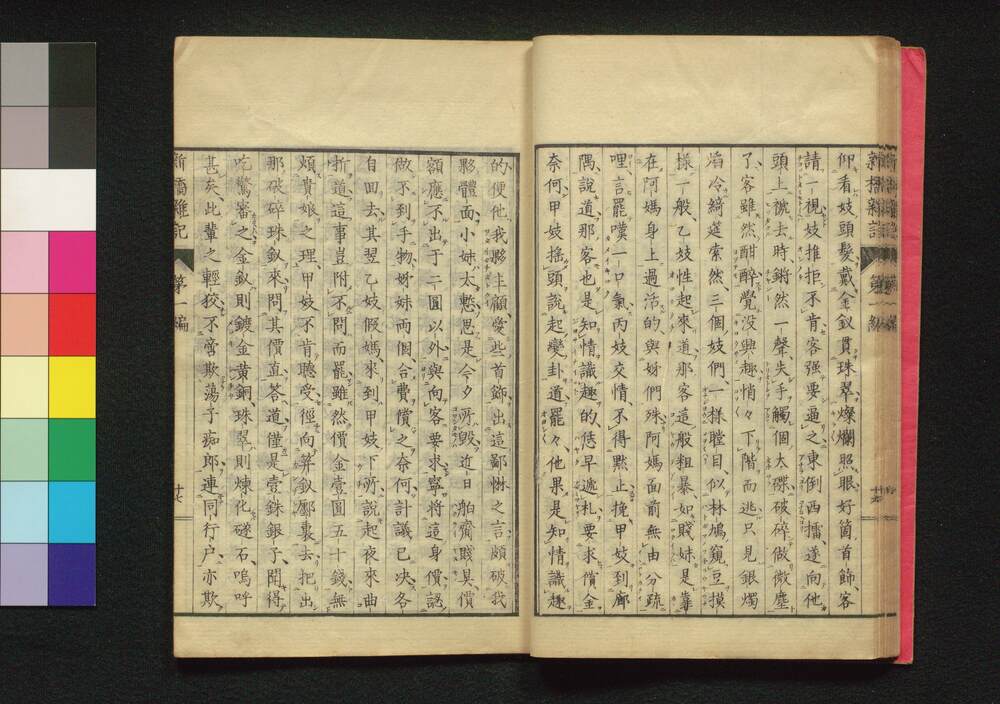 仰看妓頭髮戴金釵貫珠翠燦爛照眼好箇首飾客
請一視妓推拒不肯客强要逼之東倒西擂遂向他
頭上褫去時鏘然一聲失手觸個大磔破碎做微塵
了客雖然酣醉覺没興趣悄々下階而逃只見銀燭
焰冷綺莚索然三個妓們一樣瞠目似林鳩窺豆摸
樣一般乙妓性起來道那客這般粗暴如賤妹是靠
在阿媽身上過活的與妤們殊阿媽面前無由分疏
哩言罷嘆一口氣丙妓交情不得黙止挽甲妓到廊
隅說道那客也是知情識趣的恁早遞札要求償金
奈何甲妓搖頭說起變卦道罷々他果是知情識趣
的便他我夥主顧愛些首飾出這鄙悋之言頗破我
夥體面小妹太慙恩是今夕所毀近日舶齎賤具價
額應不出于二圓以外與向客要求寧將這身價認
做不到手物妤妹両個合費償之奈何計議已决各
自回去其翌乙妓假媽來到甲妓下所說起夜來曲
折道這事豈附不問而罷雖然價金壹圓五十錢無
煩貴娘之理甲妓不肯聽受徑向筭釵鄽裏去把出
那破碎珠釵來問其價直答道僅是壹銖銀子聞得
吃驚審之金釵則鍍金黄銅珠翠則煉化礠石嗚呼
甚矣此輩之輕狡不啻欺蕩子痴郎連同行户亦欺
新橋雜記
第一編
十七